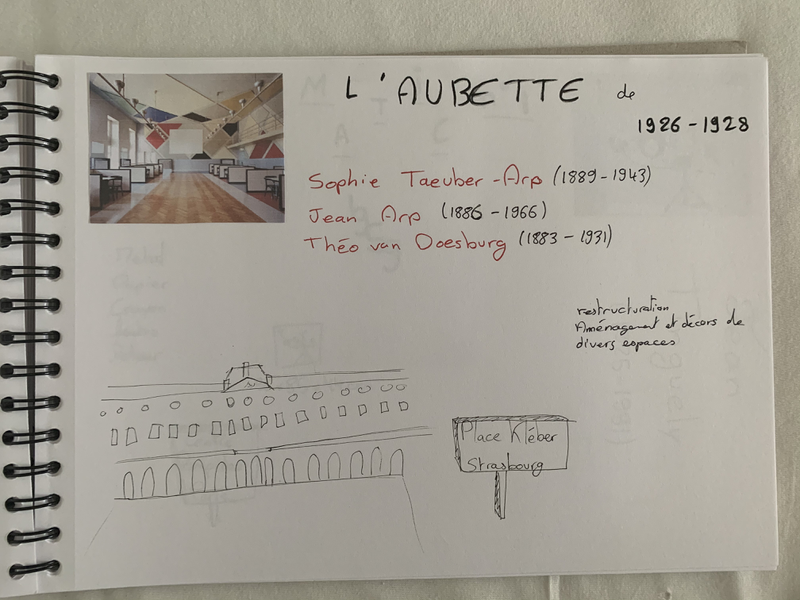 L'AUBETTE de
1926-1928
Sophie Taeuber-Arp (1889-1943)
Jean Arp (1886-1966)
Théo van Doesburg (1883-1931)
restructuration
Aménagement et décors de
divers espaces
Place Kléber
Strasbourg